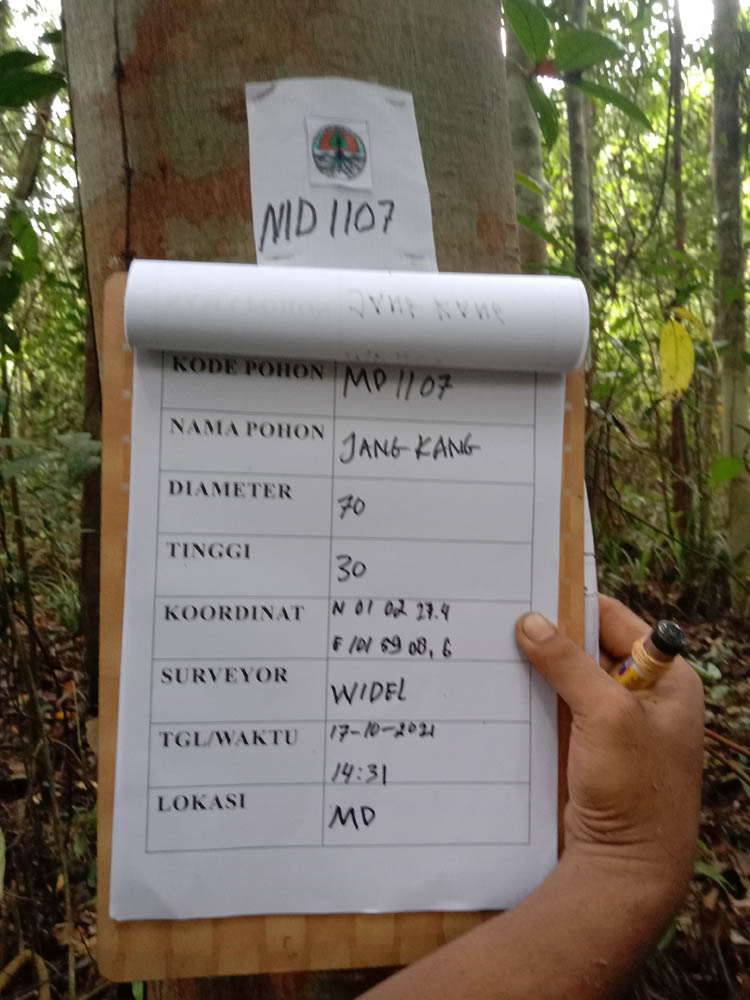 MD 1107
JANG KANG
KODE POHON MD 1107
NAMA POHON JANG KANG
DIAMETER 70
TINGGI 30
KOORDINAT N 01 02 27.4
E 101 59 08,6
SURVEYOR WIDEL
TGL/WAKTU 17-10-2021
14:31
LOKASI MD